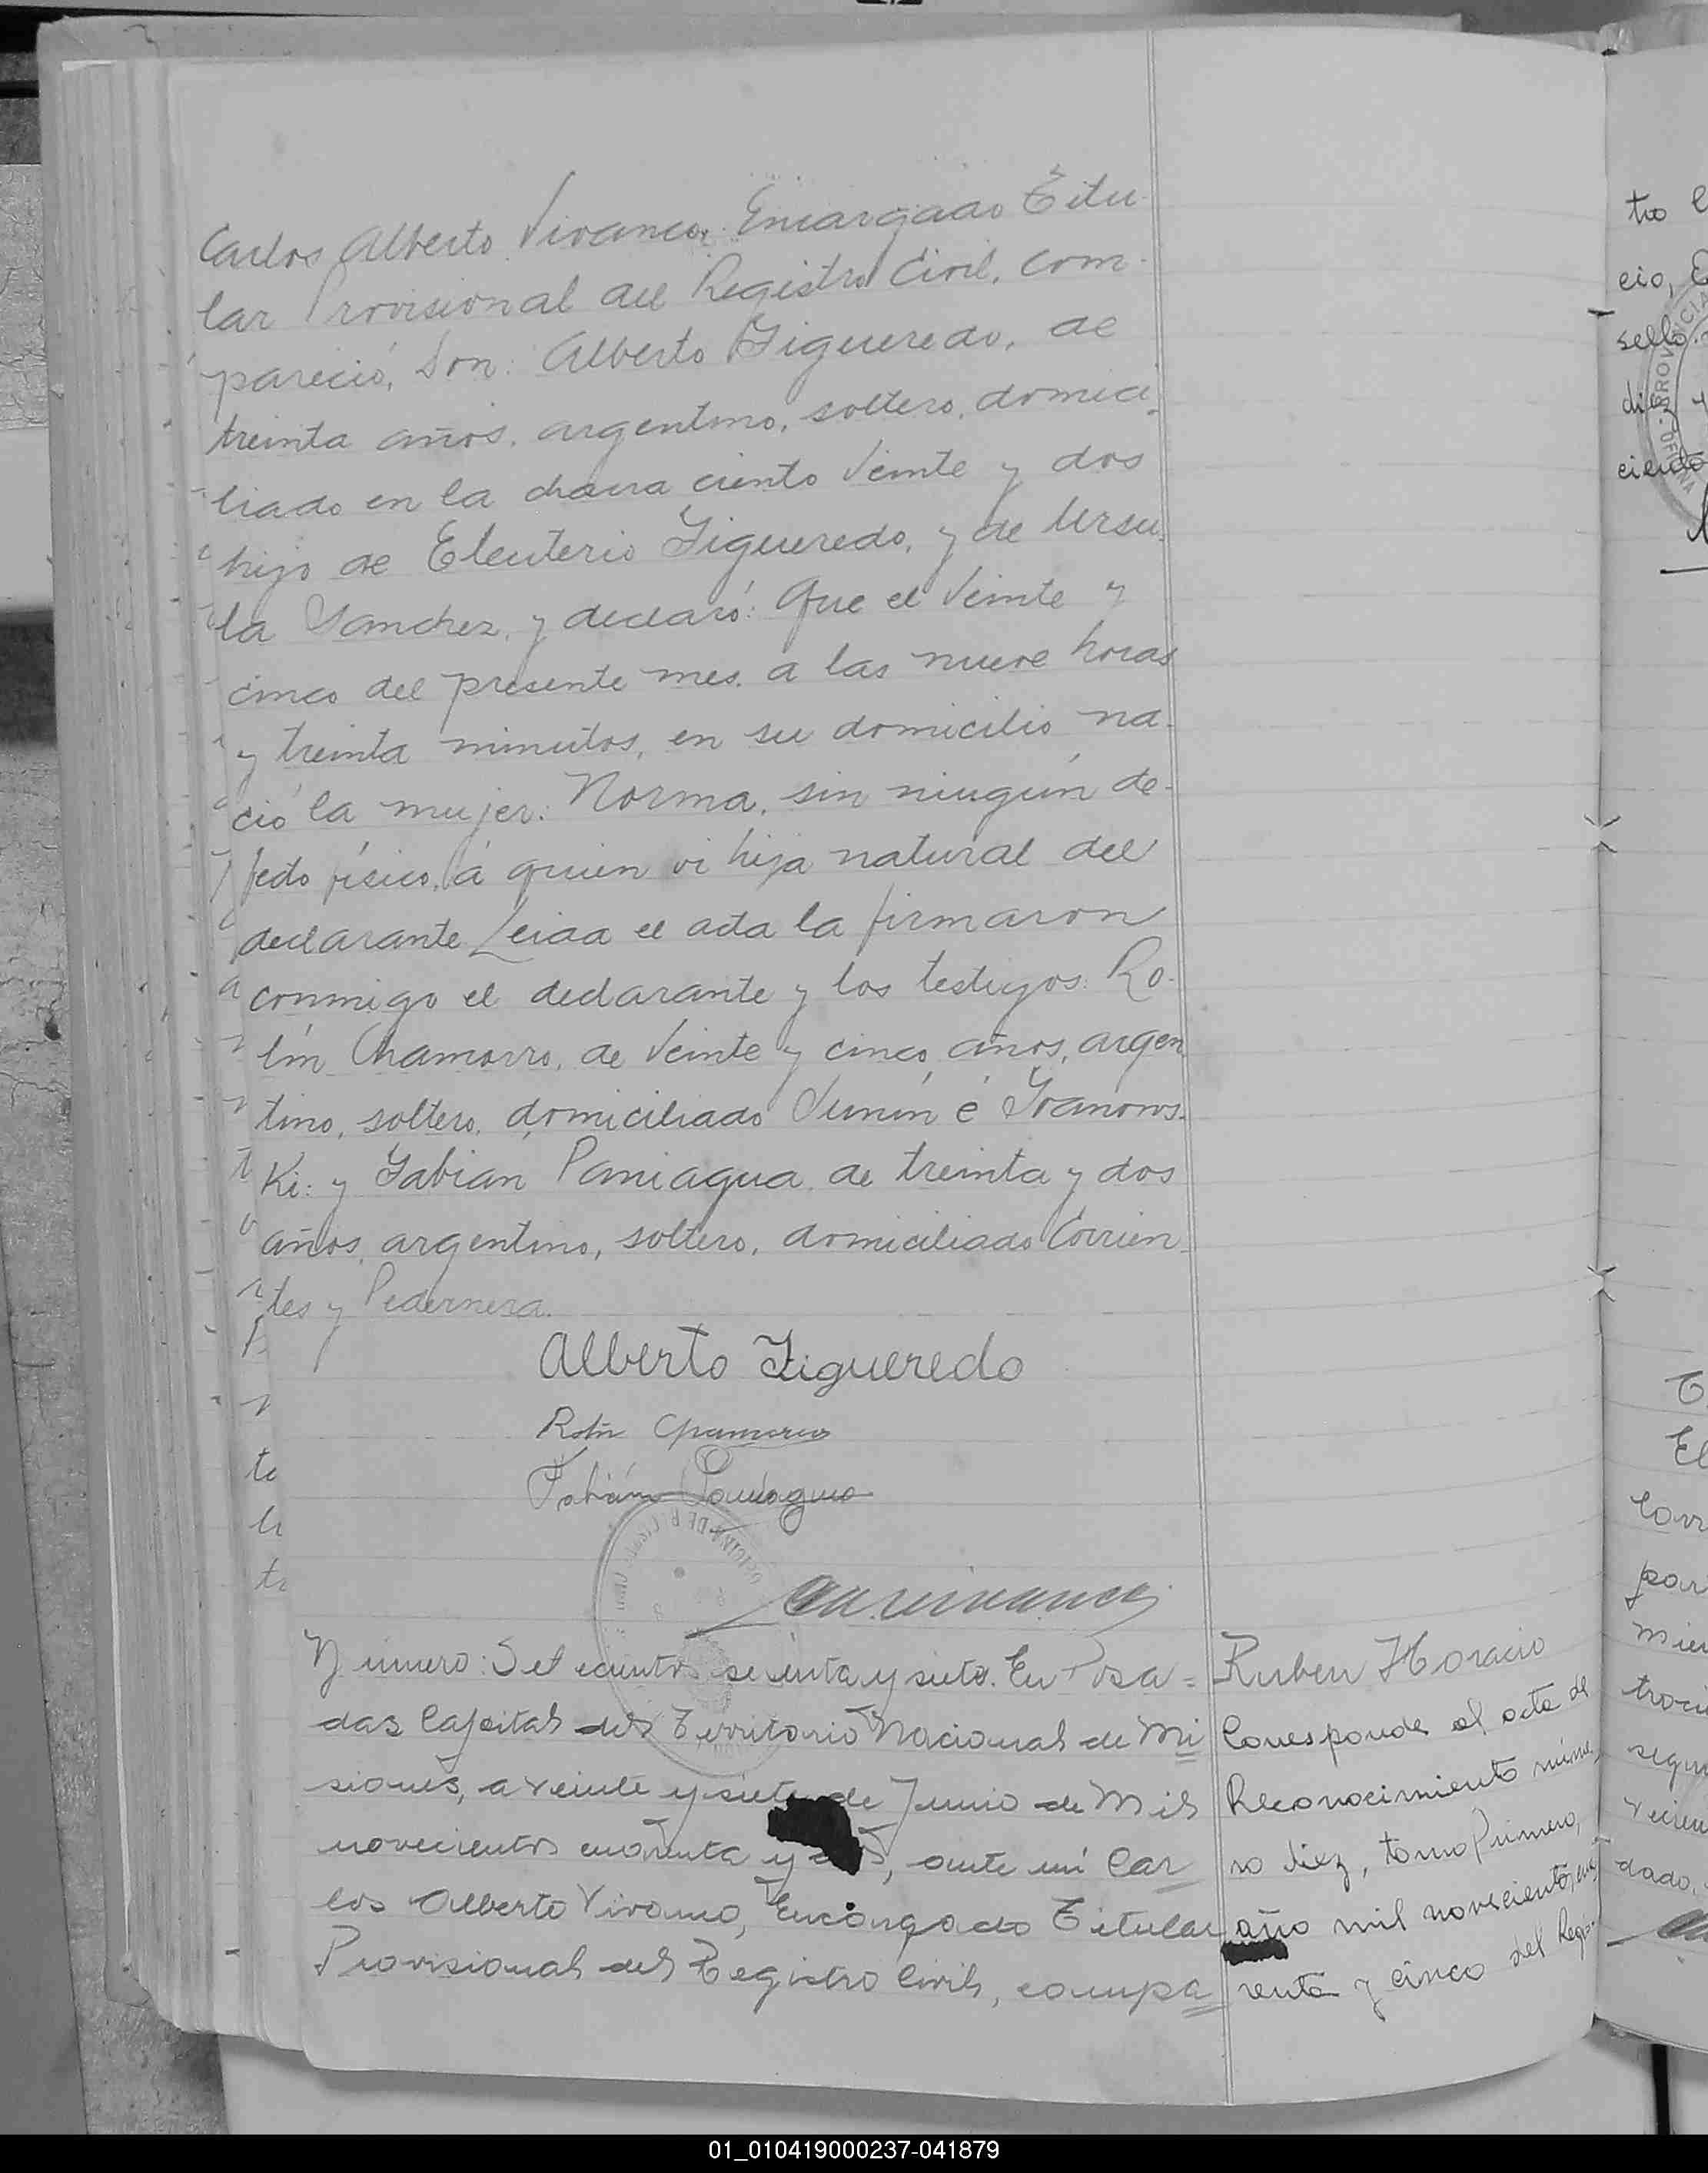 Carlos Alberto Vivanco, Encargado Titu-
lar Provisional del Registro Civil, com-
pareció, Don: Alberto Figueredo, de
treinta años, argentino, soltero, domici-
liado en la chacra ciento veinte y dos
hijo de Eleuterio Figueredo, y de Ursu-
la Sanchez, y declaró: Que el veinte y
cinco del presente mes a las nueve horas
y treinta minutos, en su domicilio na-
ció la mujer: Norma, sin ningún de-
fecto físico, á quien vi hija natural del
declarante Leida el acta la firmaron
conmigo el declarante y los testigos: Ro-
lín Chamorro, de veinte y cinco, años, argen
tino, soltero, domiciliado Junín é Ivanows-
ki: y Fabian Paniagua de treinta y dos
años, argentino, soltero, domiciliado Corrien-
tes y Pedernera.
Alberto Figueredo
Rolín Chamorro
Fabián Paniagua
Número: Setecientos setenta y siete. En Posa=
das Capital del Territorio Nacional de Mi
siones, a veinte y siete de Junio de Mil
novecientos cuarenta y, ante mi Car
los Alberto Vivanco, Encargado Titular
Provisional del Registro Civil, compa
Ruben Horacio
Corresponde al acta de
Reconocimiento núme-
ro diez, tomo Primero,
año mil novecientos cua
renta y cinco del Regis-
tro
cio,
sello
ciendo
El
Corr
par
mien
troci
segun
vecien
dado,
01_010419000237-041879